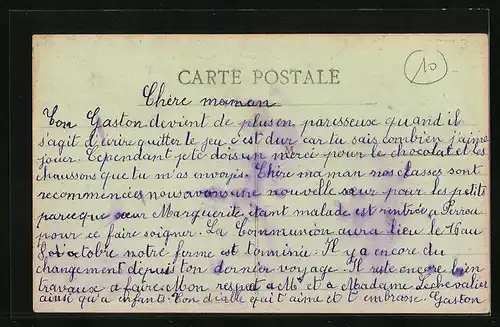 10
CARTE POSTALE
Chère maman
Ton Gaston devient de plus en paresseux quand il
s'agit d'écrire quitter le jeu c'est dur car tu sais combien j'aime
jouer. Cependant je te dois un merci pour le chocolat et les
chaussons que tu m'as envoyés. Chère maman nos classes sont
recommencées nous avons une nouvelle sœur pour les petits
parceque sœur Marguerite étant malade est rentrée a Perrou
pour ce faire soigner. La Communion aura lieu le 1 au
octobre notre ferme est terminée. Il y a encore du
changement depuis ton dernier voyage. Il reste encore bien
travaux a faire Mon respect a Mr et a Madame Lechevalier
ainsi qu'a enfants. Ton diable qui t'aime et t'embrasse. Gaston